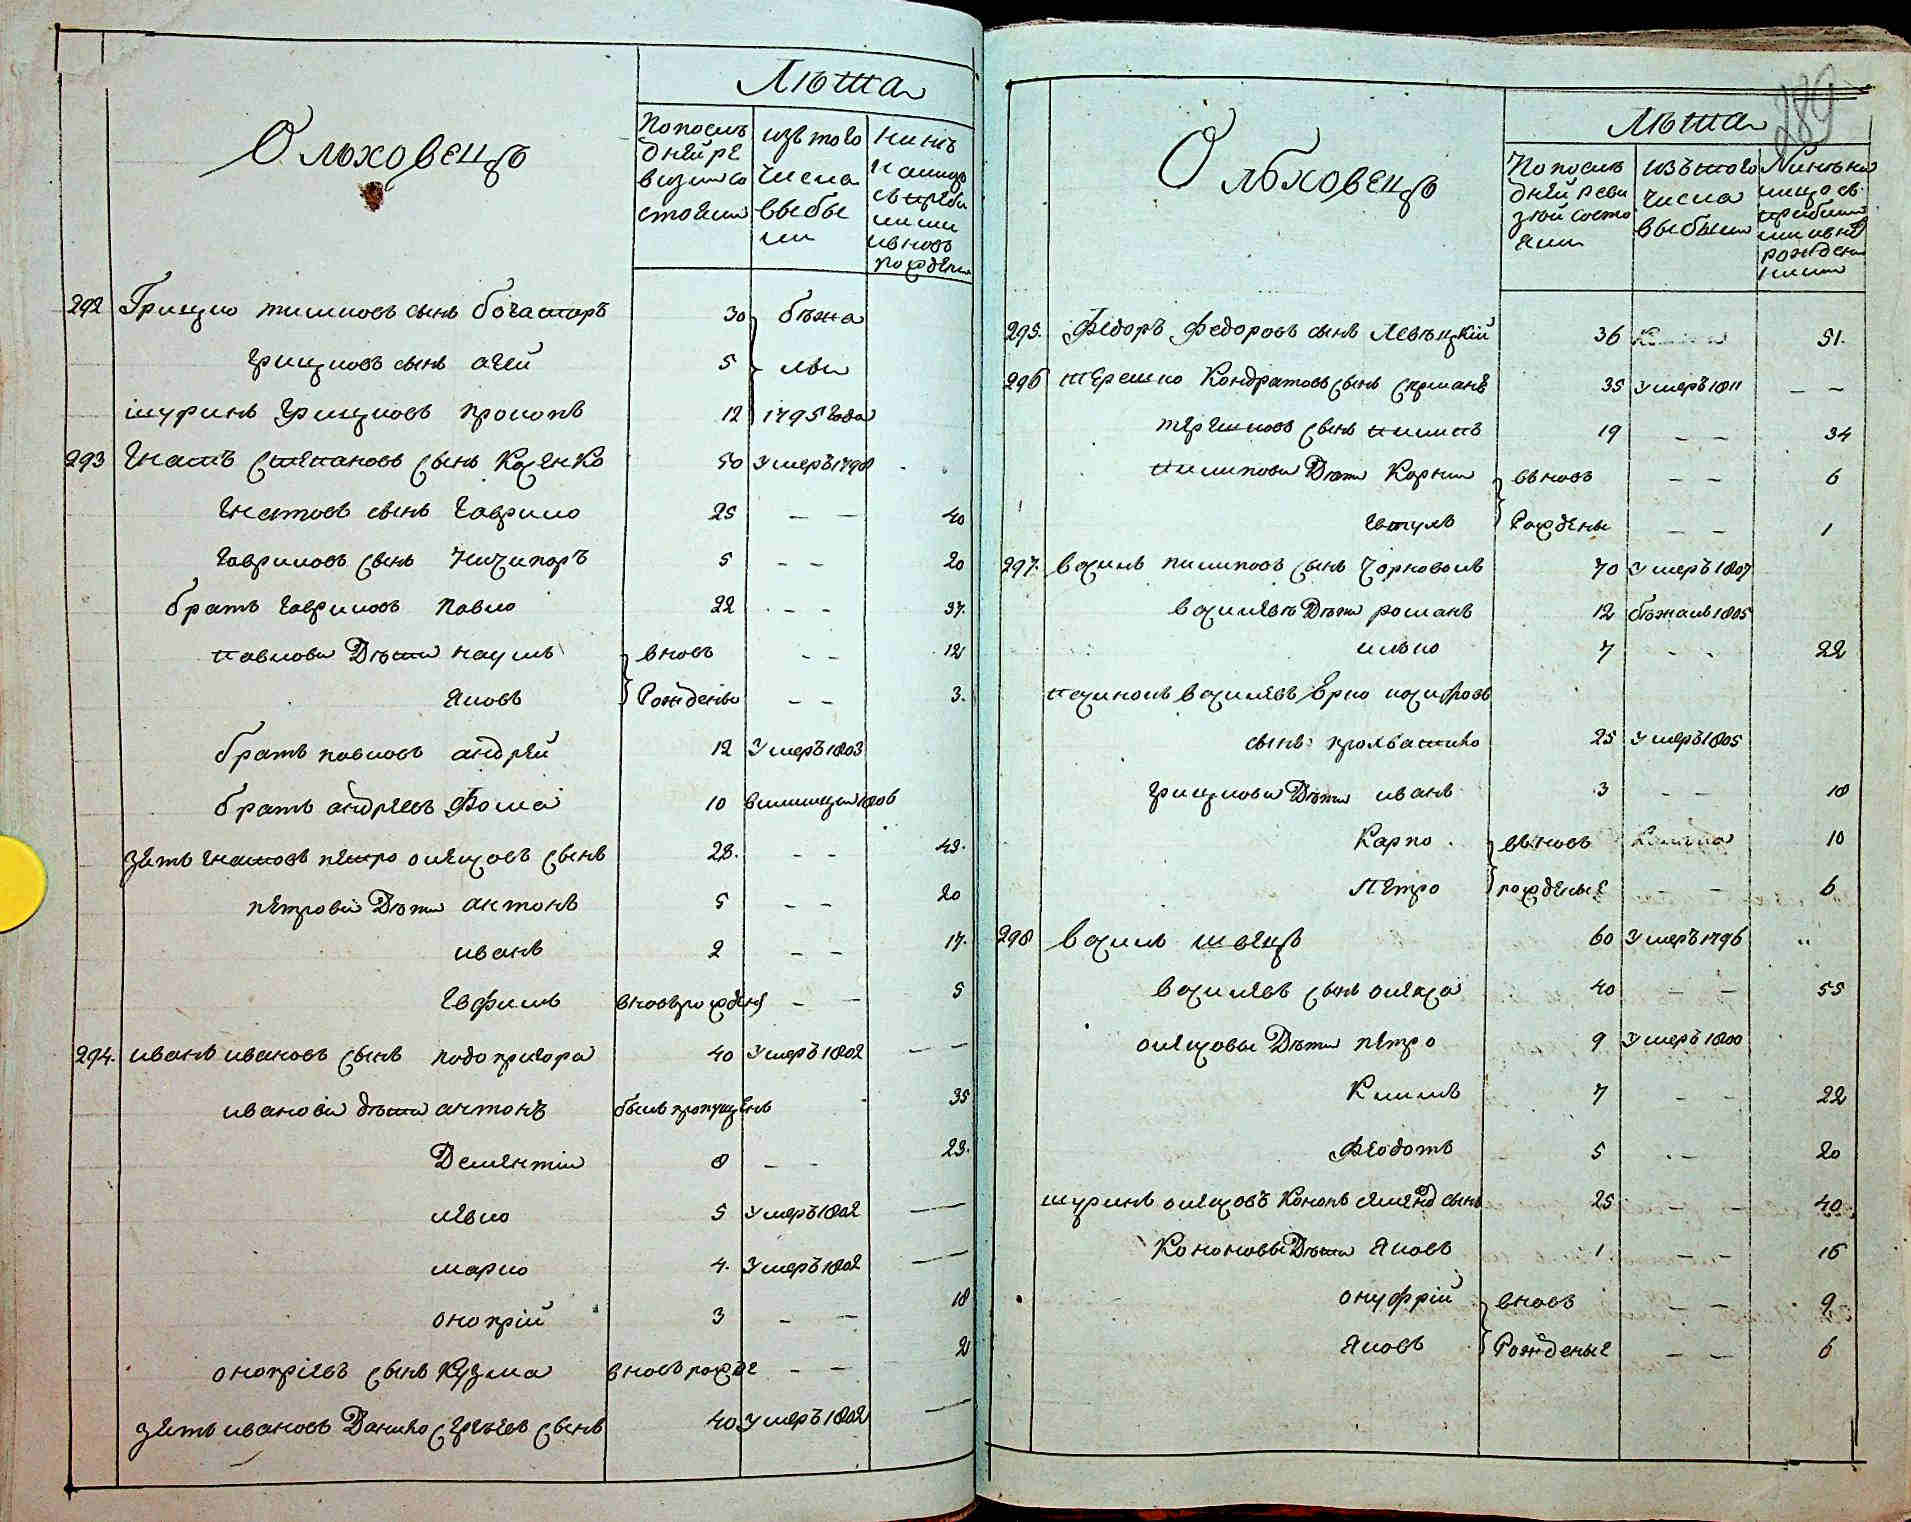 Лѣта
Ольховецъ
По послѣ
дней ре
визии со
стояли
изъ того
числа
выбы
ли
нинѣ
на лицо
съ прибы
лими
и вновь
рожден
292 Грицко тимковъ сынъ богатиръ 30 бѣжа
грицковъ сынъ агей 5 ли
шуринъ грицковъ прокопъ 12 1795 года
293 Гнатъ Степановъ сынъ Косенко 50 Умеръ 1798
Гнатовъ сынъ Гаврило 25 — — 40
Гавриловъ сынъ Ничипоръ 5 — — 20
братъ Гавриловъ Павло 22 — — 37.
павлови Дѣти наумъ вновь — — 12
Яковъ Рождены — — 3.
братъ павловъ андрей 12 Умеръ 1803
братъ андреевъ Фома 10 1806
зять гнатовъ петро олексовъ сынъ 28. — — 43.
петрови Дѣти антонъ 5 — — 20
иванъ 2 — — 17.
Евфимъ вновьрожденъ — — 5
294. иванъ ивановъ сынъ подопригора 40 Умеръ 1802 — —
иванови дѣти антонъ былъ пропущенъ 35
Дементiи 8 — — 23.
левко 5 Умеръ 1802 —
марко 4. Умеръ 1802 —
онопрiй 3 — — 18
онопрiевъ сынъ Кузма вновь рожде — — 2
зять ивановъ Данило Сергѣевъ сынъ 40 Умеръ 1802 —
289
Лѣта
Ольховецъ
По послѣ
дней реви
зiи состо
яли
изъ того
числа
выбыли
Нинѣ на
лицо съ
прибыли
ми и вно
рожден
ними
295. Федоръ Федоровъ сынъ Левѣцкiй 36 51.
296 терешко Кондратовъ сынъ 35 Умеръ 1811 — —
терешковъ сынъ пилипъ 19 — — 34
пилипови Дѣти Корнии вновь — — 6
Евтухъ Рождены — — 1
297. василь пилиповъ сынъ Чорноволъ 70 Умеръ 1807
василевы Дѣти романъ 12 бѣжалъ 1805
илько 7 — — 22
пасинокъ василевъ
сынъ 25 Умеръ 1805
грицкови Дѣти иванъ 3 — — 18
Карпо вновь 10
Петро рожденые — — 6
298 василь швецъ 60 Умеръ 1796
василевъ сынъ олекса 40 — — 55
олексовы Дѣти петро 9 Умеръ 1800
Климъ 7 — — 22
Феодотъ 5 — — 20
шуринъ олексовъ Кононъ сынъ 25 — — 40
Кононовы Дѣти Яковъ 1 — — 16
онуфрiй вновь — — 9
Яковъ Рожденые — — 6